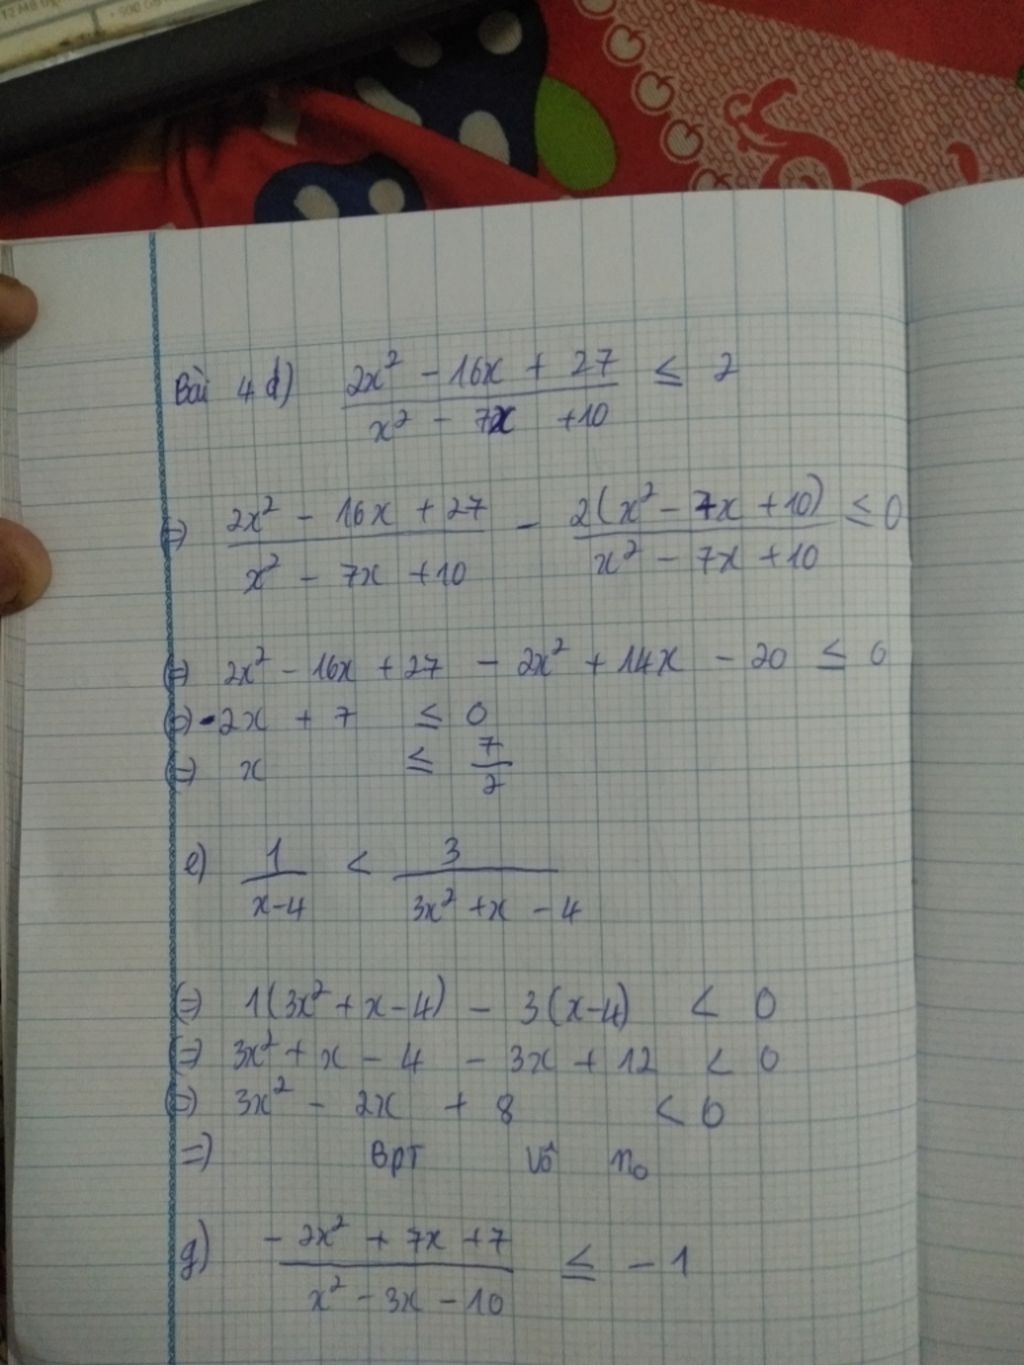 12 MB
500 GB
Bài 4 d) (2x² - 16x + 27)/(x² - 7x + 10) ≤ 2
(=) (2x² - 16x + 27)/(x² - 7x + 10) - 2(x² - 7x + 10)/(x² - 7x + 10) ≤ 0
(=) 2x² - 16x + 27 - 2x² + 14x - 20 ≤ 0
(=) -2x + 7 ≤ 0
(=) x ≤ 7/2
e) 1/(x-4) < 3/(3x² + x - 4)
(=) 1(3x² + x - 4) - 3(x-4) < 0
(=) 3x² + x - 4 - 3x + 12 < 0
(=) 3x² - 2x + 8 < 0
=) BPT Vô n₀
g) (-2x² + 7x + 7)/(x² - 3x - 10) ≤ -1